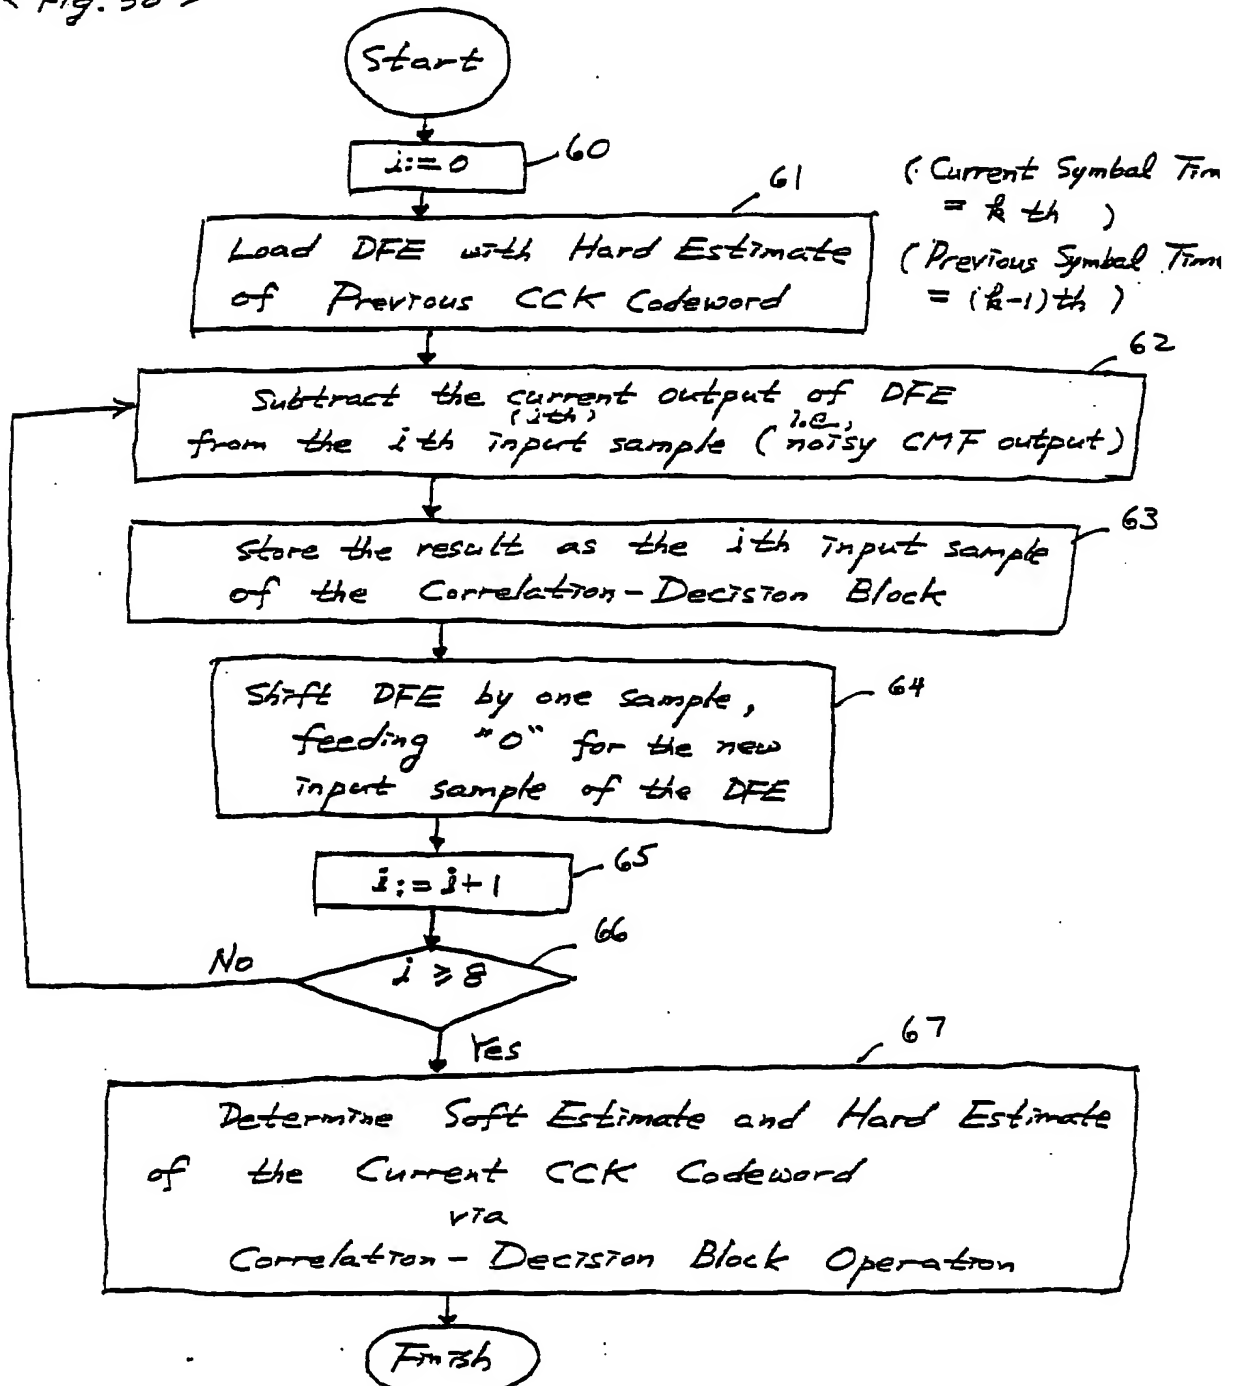 < Fig. 30 >
Start
i:=0
60
61
(: Current Symbal Tim
= k th )
( Previous Symbal Tim
= (k-1)th )
Load DFE with Hard Estimate
of Previous CCK Codeword
62
Subtract the current output of DFE
(ith) i.e.,
from the ith input sample ( noisy CMF output)
63
Store the result as the ith input sample
of the Correlation-Decision Block
64
Shift DFE by one sample,
feeding "0" for the new
input sample of the DFE
65
i:=i+1
66
No
i ≥ 8
Yes
67
Determine Soft Estimate and Hard Estimate
of the Current CCK Codeword
via
Correlation-Decision Block Operation
Finish